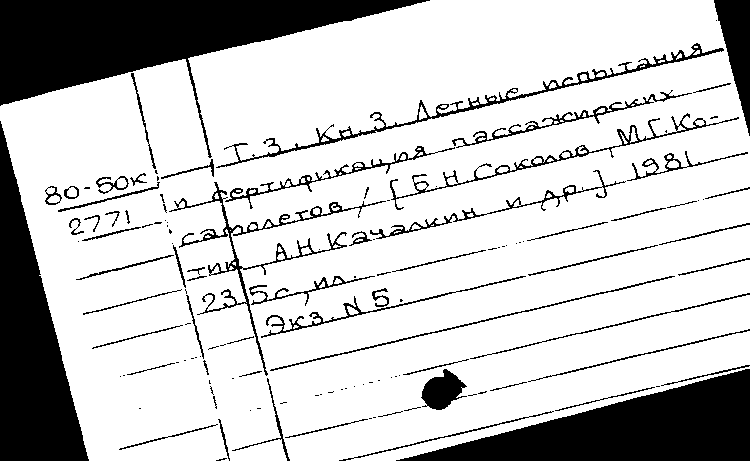 Т.3. Кн.3. Летные испытания
80-50к и сертификация пассажирских
2771 самолетов / [Б.Н.Соколов, М.Г.Ко-
тик, А.Н.Качалкин и др.] 1981.
235с., ил.
Экз. N 5.